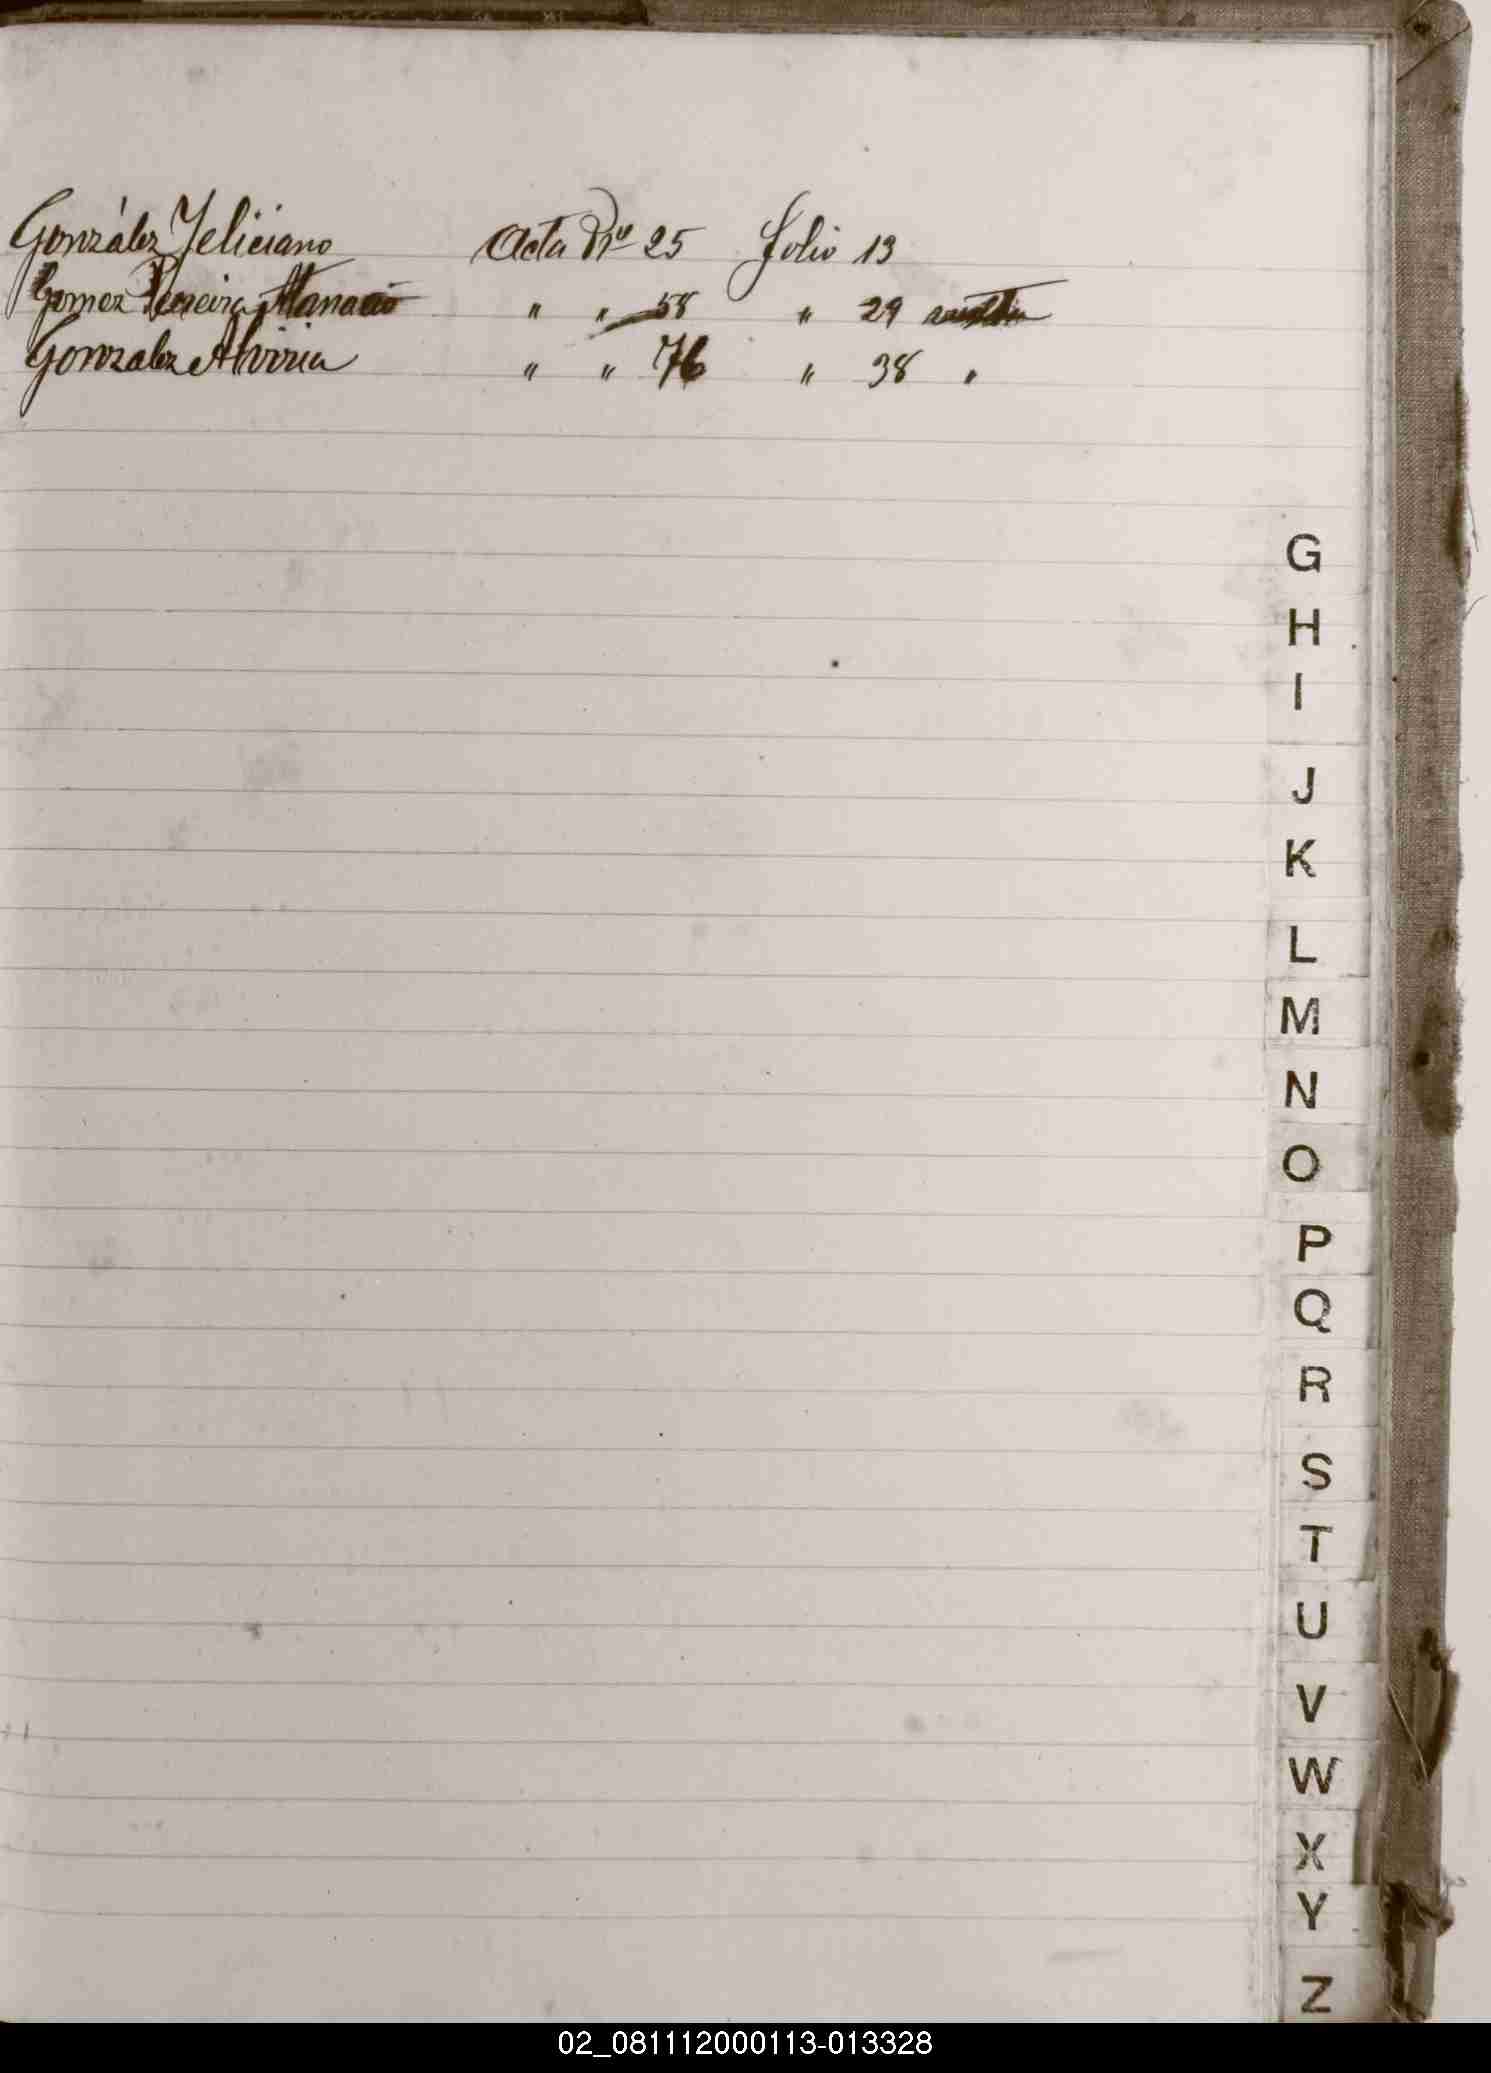 González Feliciano Acta Nº 25 folio 13
Gomez Pereira Atanacio " " 58 " 29 vuelto
Gonzalez Alviria " " 76 " 38 "
G
H
I
J
K
L
M
N
O
P
Q
R
S
T
U
V
W
X
Y
Z
02_081112000113-013328